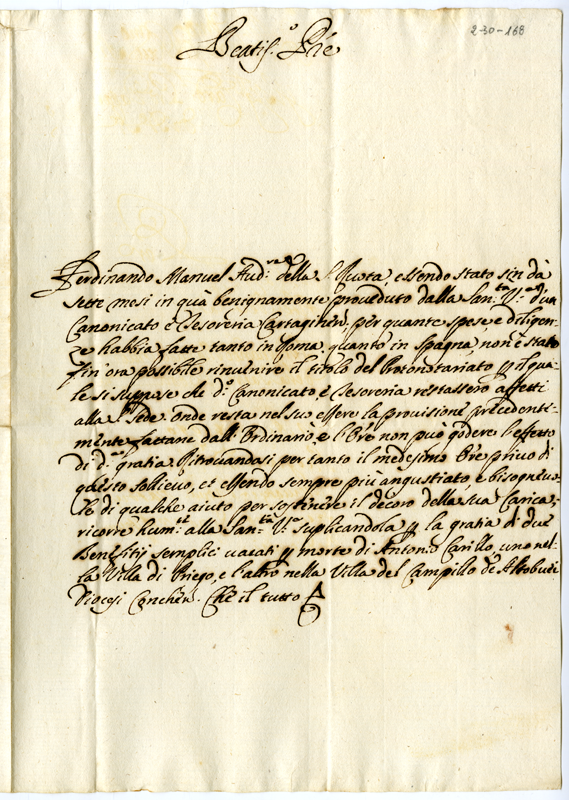 2-30-168
Beatis.º Pr̃e
Ferdinando Manuel Aud.re della S. Ruota, essendo stato sin da
sette mesi in qua benignamente proveduto dalla San.ta V.ra d'un
Canonicato e Tesoreria Cartaginen, per quante spese, e diligen-
ze habbia fatte tanto in Roma, quanto in Spagna, non è stato
fin'ora possibile rinvenire il titolo del Protonotariato p il qua-
le si suppose che d.º Canonicato, e Tesoreria restassero affetti
alla S. Sede. onde resta nel suo essere la provisione precedente-
mente fattane dall'Ordinario, e l'Ore non può godere l'effetto
di d.ª gratia. Ritrovandosi per tanto il medesimo Ore privo di
questo sollievo, et essendo sempre più angustiato, e bisognevo-
le di qualche aiuto per sostenere il decoro della sua Carica,
ricorre hum.te alla San.ta V.ra suplicandola p la gratia di due
Benefitij semplici vacati p morte di Antonio Carillo, uno nel-
la Villa di Priego, e l'altro nella Villa del Campillo de Altobuei
Diocesi Conchen. Che il tutto